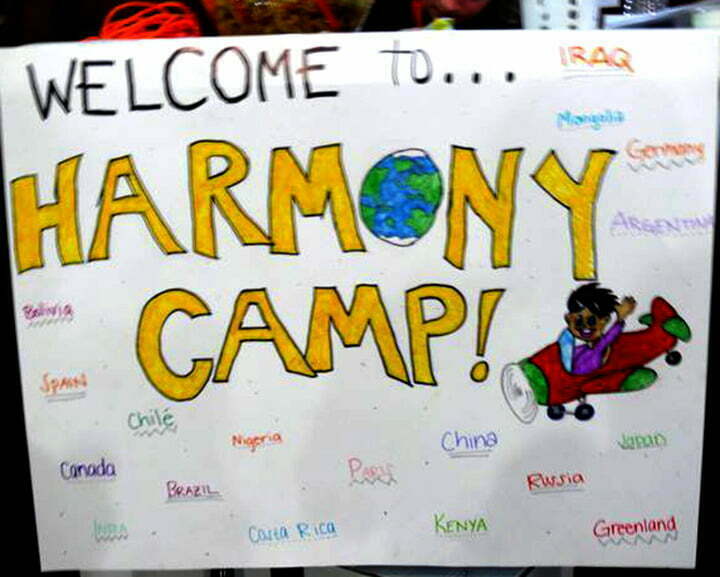 WELCOME to...
IRAQ
Mongolia
HARMONY
Germany
ARGENTINA
CAMP!
Bolivia
SPAIN
Chilé
Nigeria
China
Japan
Canada
BRAZIL
PARIS
Russia
INDIA
Costa Rica
KENYA
Greenland